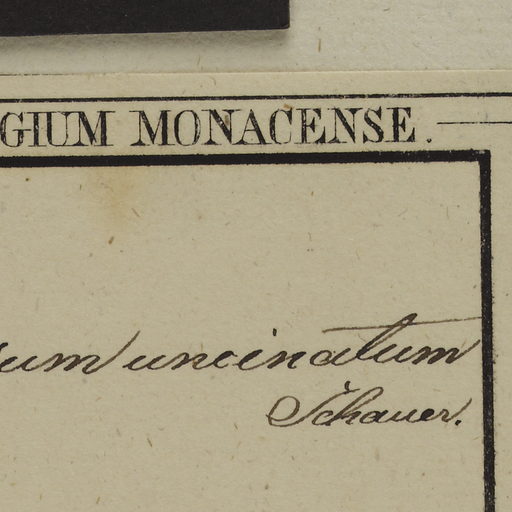 GIUM MONACENSE.
um uncinatum
Schauer.